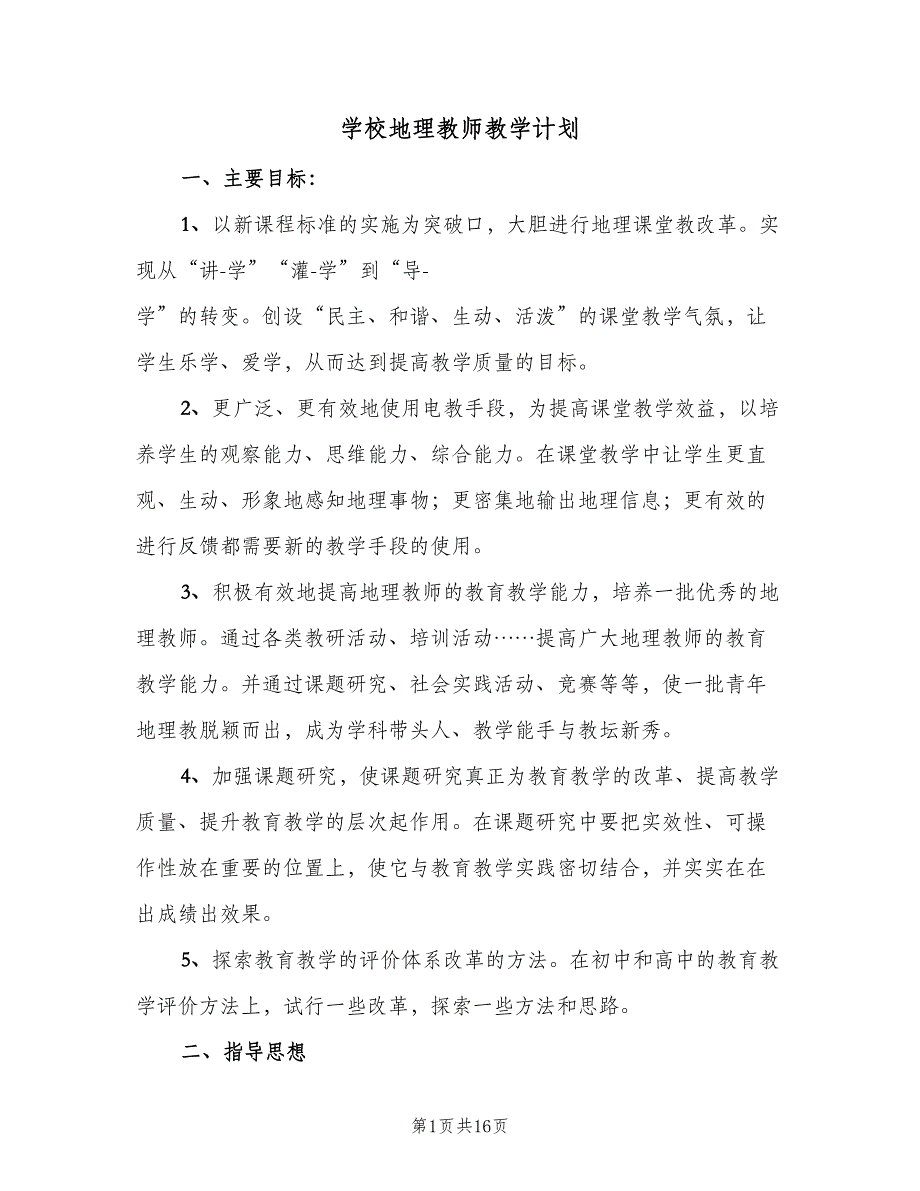 学校地理教师教学计划
一、主要目标：
1、以新课程标准的实施为突破口，大胆进行地理课堂教改革。实
现从“讲-学”“灌-学”到“导-
学”的转变。创设“民主、和谐、生动、活泼”的课堂教学气氛，让
学生乐学、爱学，从而达到提高教学质量的目标。
2、更广泛、更有效地使用电教手段，为提高课堂教学效益，以培
养学生的观察能力、思维能力、综合能力。在课堂教学中让学生更直
观、生动、形象地感知地理事物；更密集地输出地理信息；更有效的
进行反馈都需要新的教学手段的使用。
3、积极有效地提高地理教师的教育教学能力，培养一批优秀的地
理教师。通过各类教研活动、培训活动……提高广大地理教师的教育
教学能力。并通过课题研究、社会实践活动、竞赛等等，使一批青年
地理教脱颖而出，成为学科带头人、教学能手与教坛新秀。
4、加强课题研究，使课题研究真正为教育教学的改革、提高教学
质量、提升教育教学的层次起作用。在课题研究中要把实效性、可操
作性放在重要的位置上，使它与教育教学实践密切结合，并实实在在
出成绩出效果。
5、探索教育教学的评价体系改革的方法。在初中和高中的教育教
学评价方法上，试行一些改革，探索一些方法和思路。
二、指导思想
第1页共16页